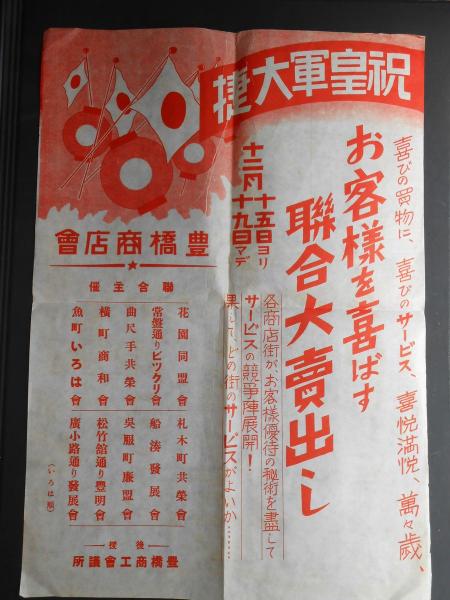 祝皇軍大捷
喜びの買物に、喜びのサービス、喜悦満悦、萬々歳、
お客様を喜ばす
聯合大賣出し
十二月十五日ヨリ
十九日マデ
各商店街が、お客様優待の秘術を盡して
サービスの競爭陣展開!
果して、どの街のサービスがよいか………
豊橋商店會
聯合主催
花園同盟會
常盤通りビツクリ會
曲尺手共榮會
横町商和會
魚町いろは會
札木町共榮會
船湊發展會
呉服町廉盟會
松竹舘通り豊明會
廣小路通り發展會
(いろは順)
後援
豊橋商工會議所